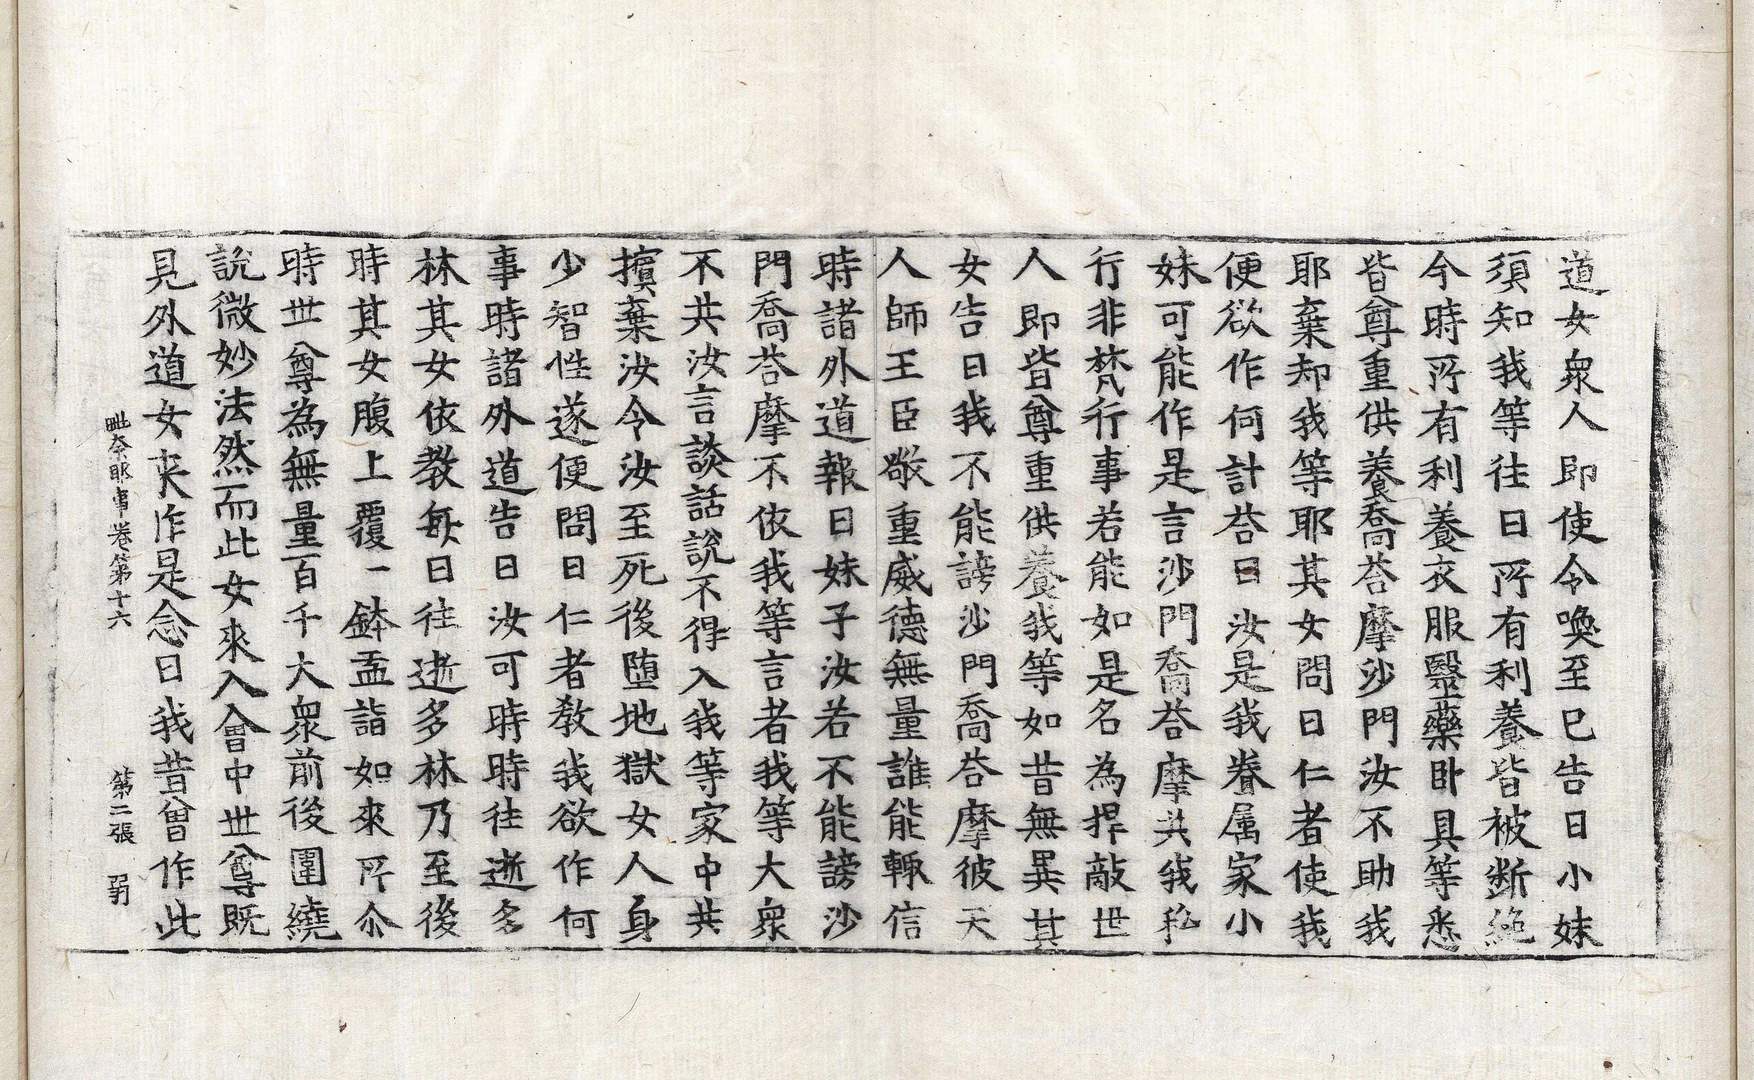 道女衆人即使令喚至已告曰小妹
須知我等往日所有利養皆被断絶
今時所有利養衣服毉藥卧具等悉
皆尊重供養喬荅摩沙門汝不助我
耶棄却我等耶其女問曰仁者使我
便欲作何計荅曰汝是我眷属家小
妹可能作是言沙門喬荅摩共我私
行非梵行事若能如是名為捍敵世
人即皆尊重供養我等如昔無異其
女告曰我不能謗沙門喬荅摩彼天
人師王臣敬重威德無量誰能輙信
時諸外道報曰妹子汝若不能謗沙
門喬荅摩不依我等言者我等大衆
不共汝言談話說不得入我等家中共
擯棄汝令汝至死後堕地獄女人身
少智性遂便問曰仁者教我欲作何
事時諸外道告曰汝可時時往逝多
林其女依教每日往逝多林乃至後
時其女腹上覆一鉢盂詣如來所尒
時世尊為無量百千大衆前後圍繞
說微妙法然而此女來入會中世尊既
見外道女来作是念曰我昔曾作此
毗奈耶事卷第十六　第二張　弱